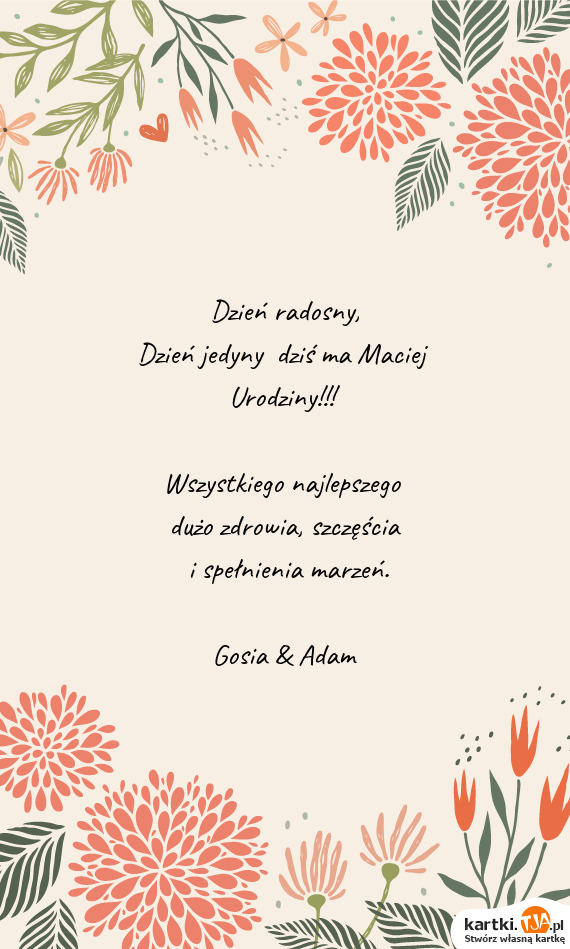 Dzień radosny,
Dzień jedyny dziś ma Maciej
Urodziny!!!
Wszystkiego najlepszego
dużo zdrowia, szczęścia
i spełnienia marzeń.
Gosia & Adam
kartki.TJA.pl
Stwórz własną kartkę